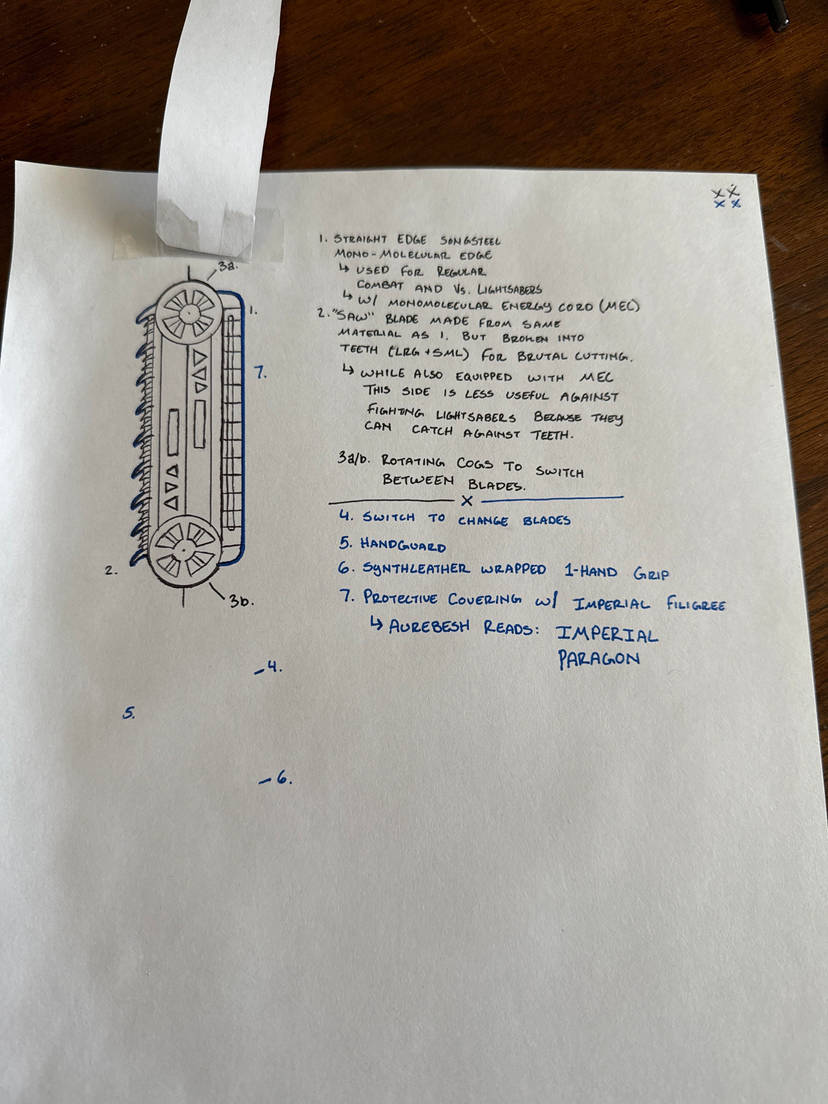 XX
XX
3a.
1.
7.
2.
3b.
4.
5.
6.
1. STRAIGHT EDGE SONGSTEEL
MONO-MOLECULAR EDGE
↳ USED FOR REGULAR
COMBAT AND VS. LIGHTSABERS
↳ W/ MONOMOLECULAR ENERGY CORD (MEC)
2. "SAW" BLADE MADE FROM SAME
MATERIAL AS 1. BUT BROKEN INTO
TEETH (LRG + SML) FOR BRUTAL CUTTING.
↳ WHILE ALSO EQUIPPED WITH MEC
THIS SIDE IS LESS USEFUL AGAINST
FIGHTING LIGHTSABERS BECAUSE THEY
CAN CATCH AGAINST TEETH.
3a/b. ROTATING COGS TO SWITCH
BETWEEN BLADES.
X
4. SWITCH TO CHANGE BLADES
5. HANDGUARD
6. SYNTHLEATHER WRAPPED 1-HAND GRIP
7. PROTECTIVE COVERING W/ IMPERIAL FILIGREE
↳ AUREBESH READS: IMPERIAL
PARAGON